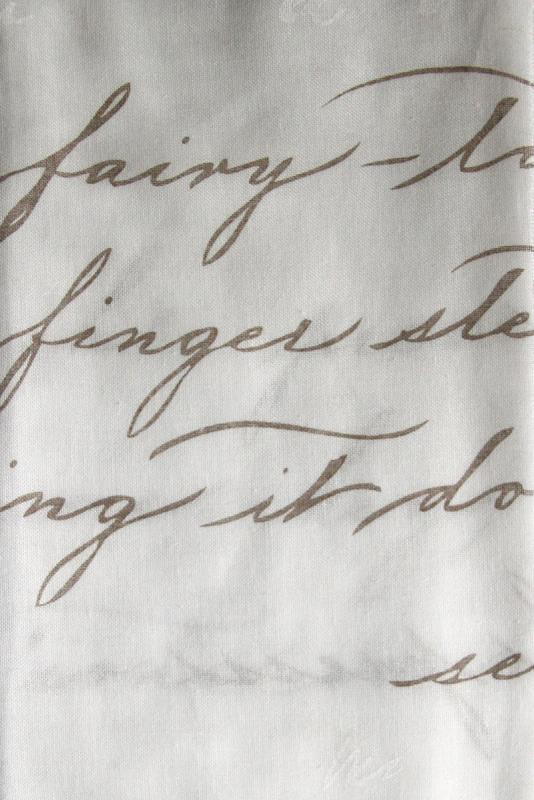 fairy-ta
finger ste
ing it do
se